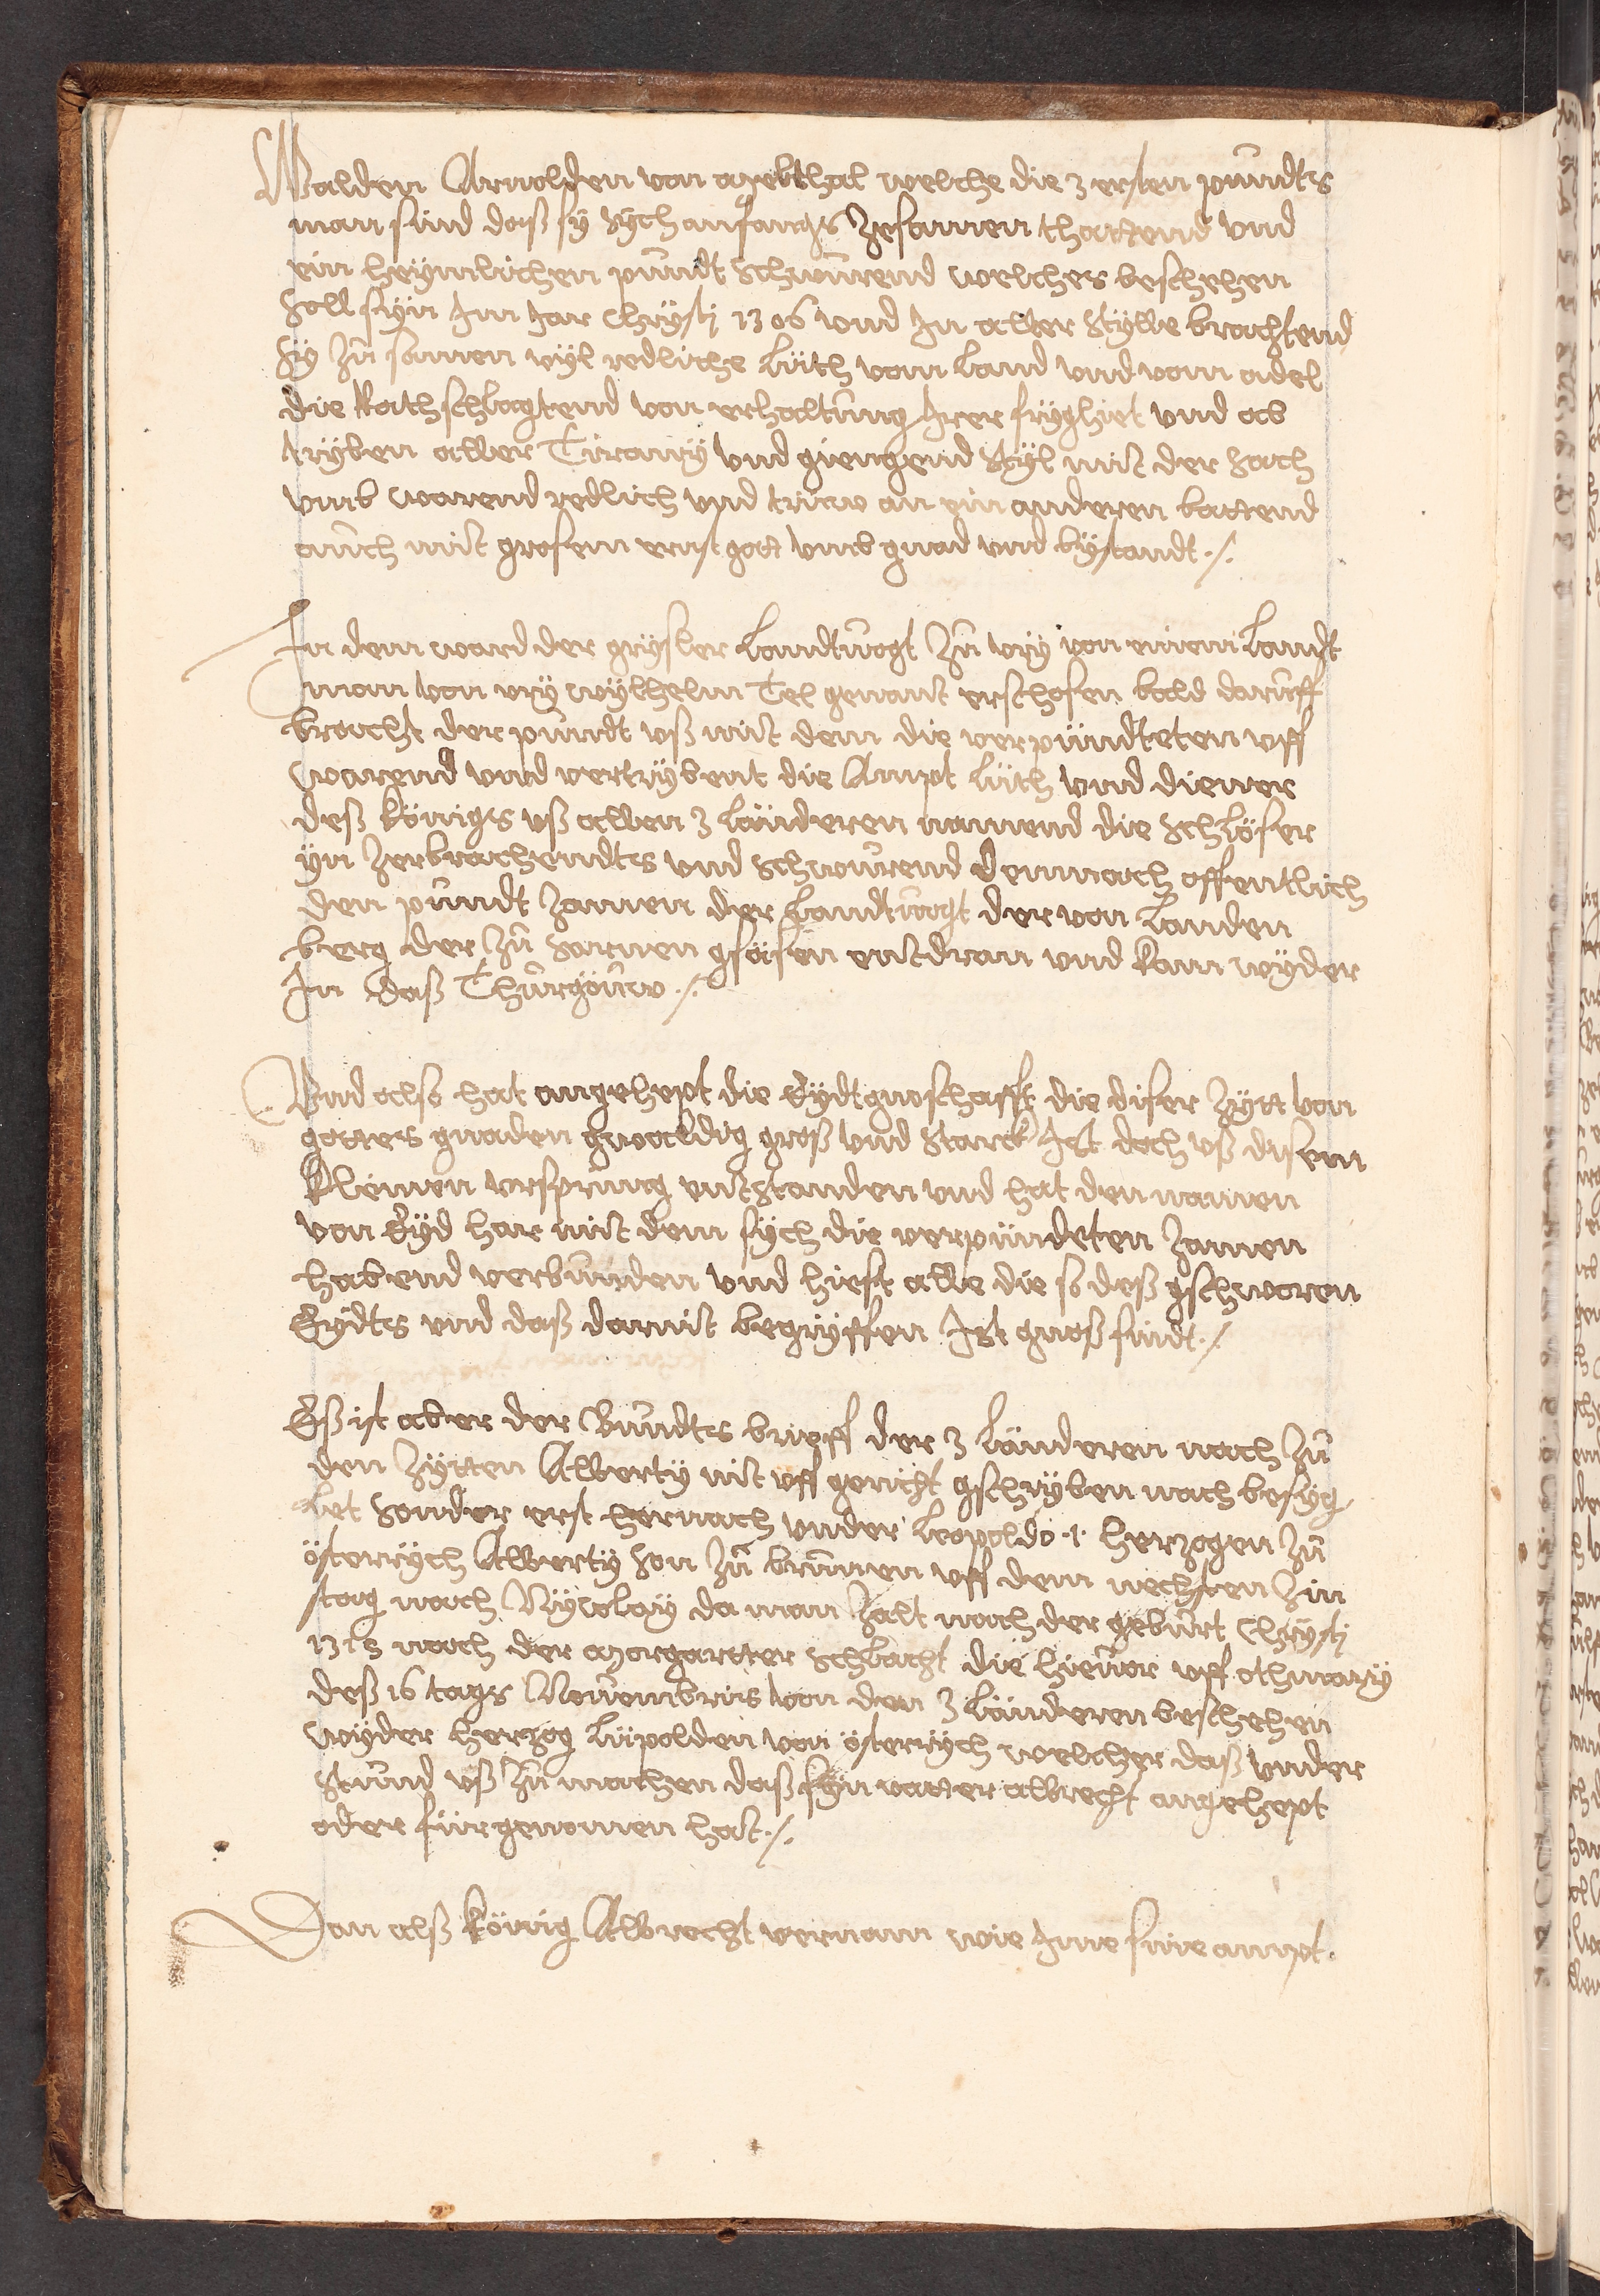 Walden Arnolden von Melchthal welche die 3 ersten pundts
man sind daß sy sych anfangs zesamen thattend vnd
ein heymlichen pundt schwurend welches beschehen
soll syn Im Jar Chrysti 1306 vnd In aller stylle brachtend
sy zů samen vyl redliche lüth vom land vnd vom adel
die Rathschlagtend von erhaltung Irer frygheit vnd ab
tryben aller Tirany vnd giengend styl mit der sach
vmb warend redlich vnd trüw an ein anderen battend
auch mit grosem ernst gott vmb gnad vnd bystandt ./.
In dem ward der grysler landtvogt zů vry von einem landt
man von vry wylhelm Tel genant erschosen bald daruff
bracht der pundt vß mit dem die verpündteten vff
warend vnd vertrybent die Ampt lüth vnd diener
deß königs vß allen 3 länderen namend die schlöser
yn zerbrachendts vnd schwurend demnach offentlich
den pundt zamen der landtvogt der von landen
berg der zů sarnen gsäsen entdran vnd kam wyder
In daß Thurgöuw ./.
Vnd also hat angehept die Eydtgnoschafft die diser zytt von
gottes gnaden gwaldig groß vnd starck Ist doch vß disem
kleinen vrsprung entstanden vnd hat den namen
von Eyd har mit dem sych die verpündeten zamen
habend verbunden vnd hiest alle die so deß gschworen
Eydts vnd daß darmit begryffen Ist gnoß sindt ./.
Eß ist aber der Bundts brieff der 3 länderen nach zů
den zytten Alberty nit vff gericht gschryben nach besyg
let sonder erst hernach vnder leopoldo .1. herzogen zů
österrych Alberty son zů brunnen vff dem nechsten zin
stag nach Nycolay da man zalt nach der geburt Chrysti
1315 nach der Morgartter schlacht die hieuor vff othmary
deß 16 tags Nouembris von den 3 länderen beschehen
wyder herzog lüpolden von österrych welcher daß vnder
stund vß zů machen daß syn vatter albrecht angehept
oder fürgenomen hat ./.
Dan alß könig Albrecht vernam wie Ime sine ampt.